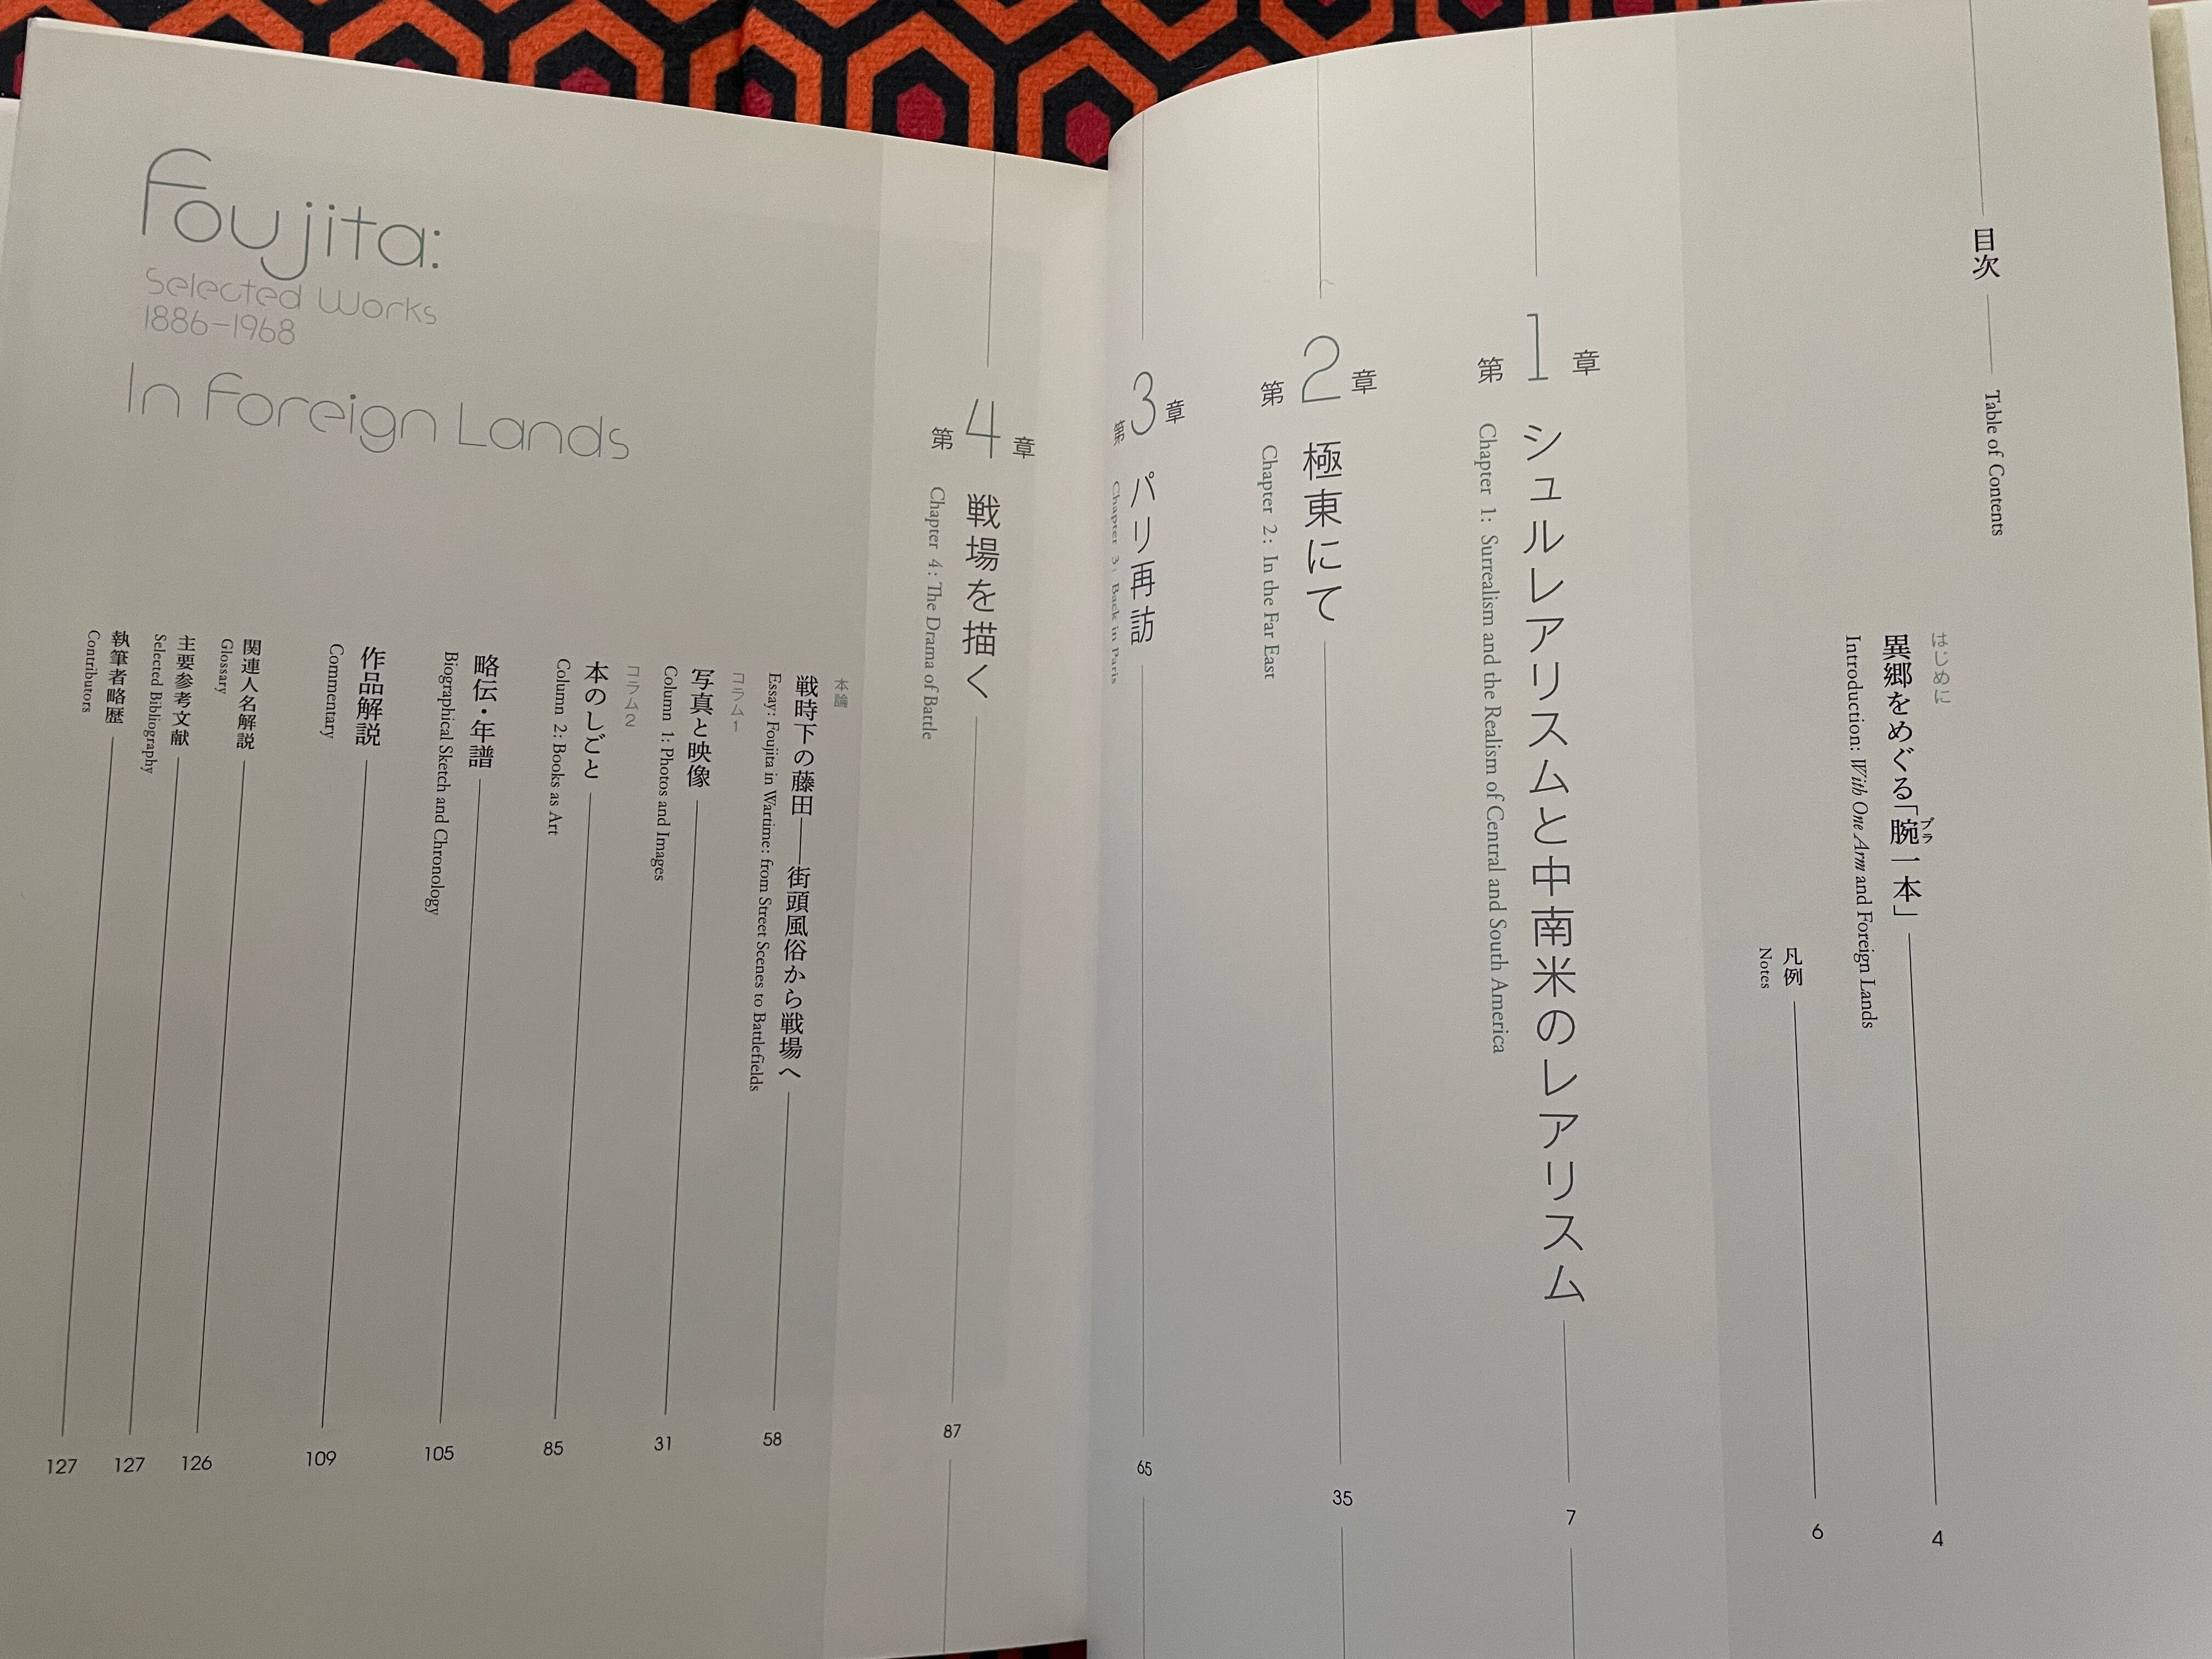 目次
Table of Contents
はじめに
異郷をめぐる「腕一本」
ブラ
Introduction: With One Arm and Foreign Lands
4
凡例
Notes
6
第1章
シュルレアリスムと中南米のレアリスム
Chapter 1: Surrealism and the Realism of Central and South America
7
第2章
極東にて
Chapter 2: In the Far East
35
第3章
パリ再訪
Chapter 3: Back in Paris
65
第4章
戦場を描く
Chapter 4: The Drama of Battle
87
本論
戦時下の藤田——街頭風俗から戦場へ
Essay: Foujita in Wartime: from Street Scenes to Battlefields
58
コラム1
写真と映像
Column 1: Photos and Images
31
コラム2
本のしごと
Column 2: Books as Art
85
略伝・年譜
Biographical Sketch and Chronology
105
作品解説
Commentary
109
関連人名解説
Glossary
126
主要参考文献
Selected Bibliography
127
執筆者略歴
Contributors
127
Foujita:
Selected Works
1886–1968
In Foreign Lands